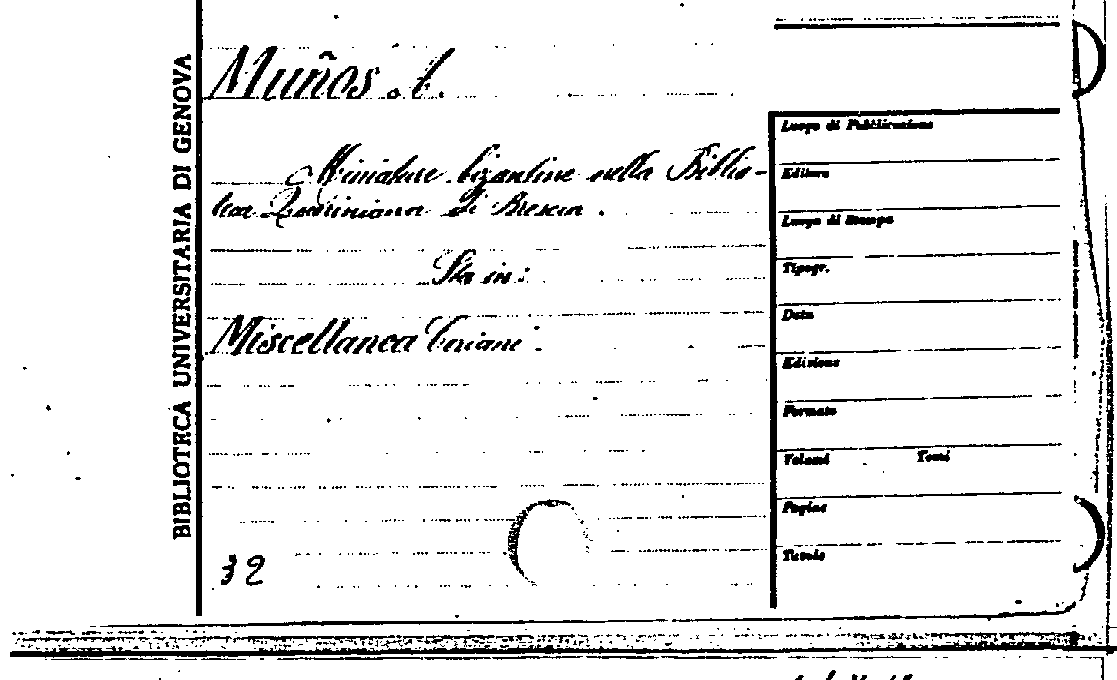 BIBLIOTECA UNIVERSITARIA DI GENOVA
Muños A.
Miniature bizantine nella Biblio-
teca Queriniana di Brescia.
Sta in:
Miscellanea Ceriani.
32
Luogo di Pubblicazione
Editore
Luogo di Stampa
Tipogr.
Data
Edizione
Formato
Volumi Tomi
Pagine
Tavole